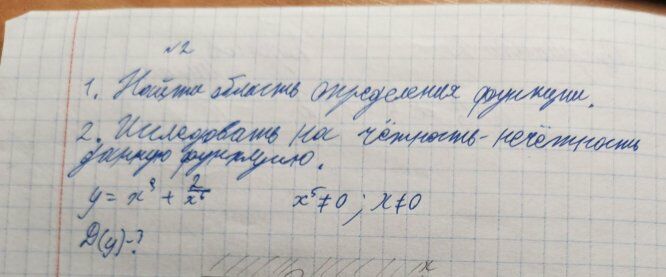 №2
1. Найти область определения функции.
2. Исследовать на чётность-нечётность
данную функцию.
y = x⁹ + 2/x⁵ x⁵ ≠ 0 ; x ≠ 0
D(y)-?
x